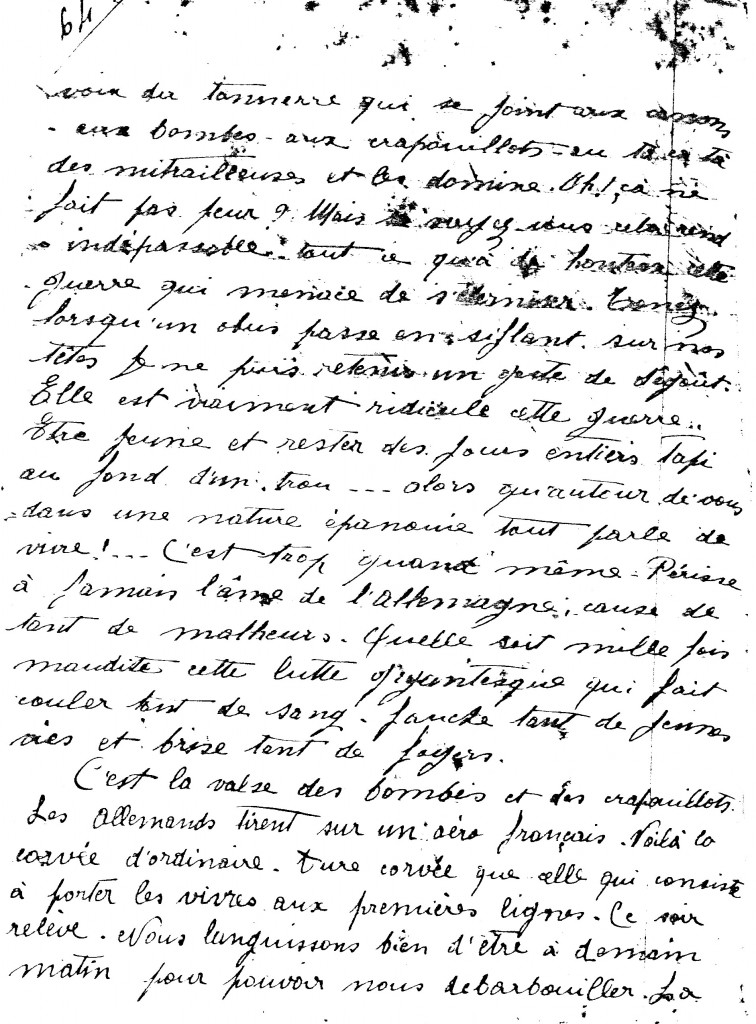 64
voix du tonnerre qui se joint aux canons
- aux bombes - aux crapouillots - au ta ca ta
des mitrailleuses et les domine. Oh! ça ne
fait pas peur ? Mais voyez vous cela rend
indépassable tout ce qu'à de honteux cette
guerre qui menace de s'éterniser. Tenez
lorsqu'un obus passe en siflant sur nos
têtes je ne puis retenir un geste de dégoût.
Elle est vraiment ridicule cette guerre..
Etre jeune et rester des jours entiers tapi
au fond d'un trou --- alors qu'auteur de vous
dans une nature épanouie tout parle de
vivre! --- C'est trop quand même - Périsse
à jamais l'âme de l'Allemagne, cause de
tant de malheurs. Quelle soit mille fois
maudite cette lutte gigantesque qui fait
couler tant de sang - fauche tant de jeunes
vies et brise tant de foyers.
C'est la valse des bombes et des crapouillots.
Les Allemands tirent sur un aéro français. Voilà la
corvée d'ordinaire. Dure corvée que celle qui consiste
à porter les vivres aux premières lignes. Ce soir
relève. Nous languissons bien d'être à demain
matin pour pouvoir nous debarbouiller. La